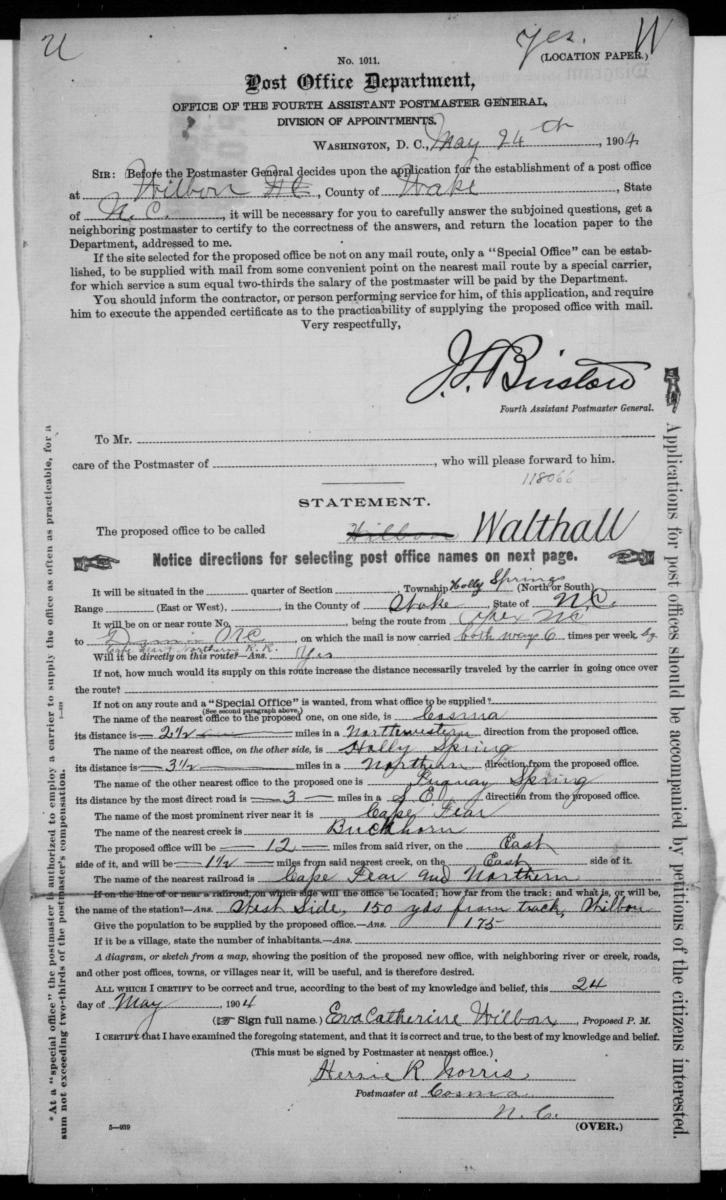 U
yes. W
No. 1011.
(LOCATION PAPER.)
Post Office Department,
OFFICE OF THE FOURTH ASSISTANT POSTMASTER GENERAL,
DIVISION OF APPOINTMENTS.
WASHINGTON, D. C., May 24th, 1904
SIR: Before the Postmaster General decides upon the application for the establishment of a post office
at Wilbon NC, County of Wake, State
of N.C., it will be necessary for you to carefully answer the subjoined questions, get a
neighboring postmaster to certify to the correctness of the answers, and return the location paper to the
Department, addressed to me.
If the site selected for the proposed office be not on any mail route, only a "Special Office" can be estab-
lished, to be supplied with mail from some convenient point on the nearest mail route by a special carrier,
for which service a sum equal two-thirds the salary of the postmaster will be paid by the Department.
You should inform the contractor, or person performing service for him, of this application, and require
him to execute the appended certificate as to the practicability of supplying the proposed office with mail.
Very respectfully,
Fourth Assistant Postmaster General.
To Mr.
care of the Postmaster of , who will please forward to him.
118066
STATEMENT.
The proposed office to be called Wilbon Walthall
Notice directions for selecting post office names on next page.
It will be situated in the quarter of Section , Township Holly Springs (North or South),
Range (East or West), , in the County of Wake, State of N.C.
It will be on or near route No. , being the route from Apex NC
to NC, on which the mail is now carried both ways 6 times per week,
Cape Fear & Northern R. R.
Will it be directly on this route?—Ans. Yes
If not, how much would its supply on this route increase the distance necessarily traveled by the carrier in going once over
the route?
If not on any route and a "Special Office" is wanted, from what office to be supplied?
(See second paragraph above.)
The name of the nearest office to the proposed one, on one side, is Cosma
its distance is 2 1/2 miles in a Northwestern direction from the proposed office.
The name of the nearest office, on the other side, is Holly Spring
its distance is 3 1/2 miles in a Northern direction from the proposed office.
The name of the other nearest office to the proposed one is Fuquay Spring
its distance by the most direct road is 3 miles in a S E direction from the proposed office.
The name of the most prominent river near it is Cape Fear
The name of the nearest creek is Buckhorn
The proposed office will be 12 miles from said river, on the East
side of it, and will be 1 1/2 miles from said nearest creek, on the East side of it.
The name of the nearest railroad is Cape Fear and Northern
If on the line of or near a railroad, on which side will the office be located; how far from the track; and what is, or will be,
the name of the station?—Ans. West Side, 150 yds from track, Wilbon
Give the population to be supplied by the proposed office.—Ans. 175
If it be a village, state the number of inhabitants.—Ans.
A diagram, or sketch from a map, showing the position of the proposed new office, with neighboring river or creek, roads,
and other post offices, towns, or villages near it, will be useful, and is therefore desired.
ALL WHICH I CERTIFY to be correct and true, according to the best of my knowledge and belief, this 24
day of May, 1904
(☞ Sign full name.) Eva Catherine Wilbon, Proposed P. M.
I CERTIFY that I have examined the foregoing statement, and that it is correct and true, to the best of my knowledge and belief.
(This must be signed by Postmaster at nearest office.)
R. Norris
Postmaster at Cosma
N. C.
5—939
(OVER.)
*At a "special office" the postmaster is authorized to employ a carrier to supply the office as often as practicable, for a
sum not exceeding two-thirds of the postmaster's compensation.
Applications for post offices should be accompanied by petitions of the citizens interested.